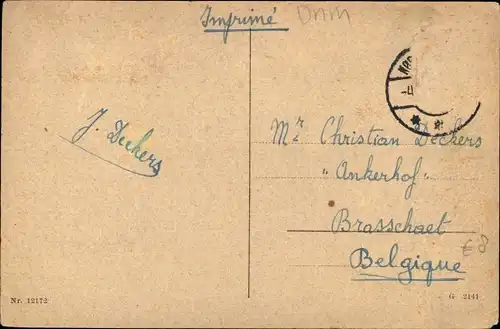 Imprimé
DNM
J. Deckers
Mr. Christian Deckers
"Ankerhof"
Brasschaet
Belgique
€8
Nr. 12172
G 2141